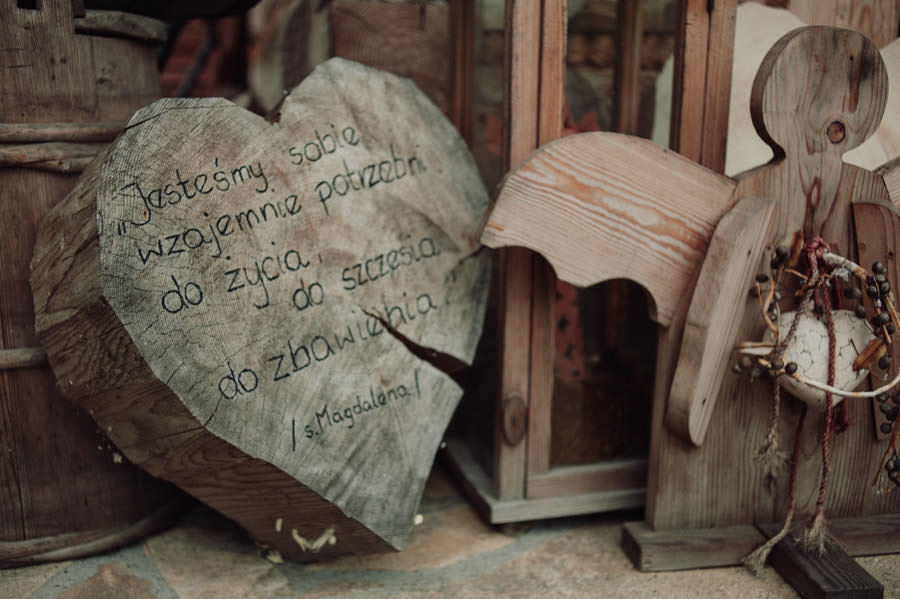 „Jesteśmy sobie
wzajemnie potrzebni
do życia,
do szczęścia
do zbawienia"
/s. Magdalena/